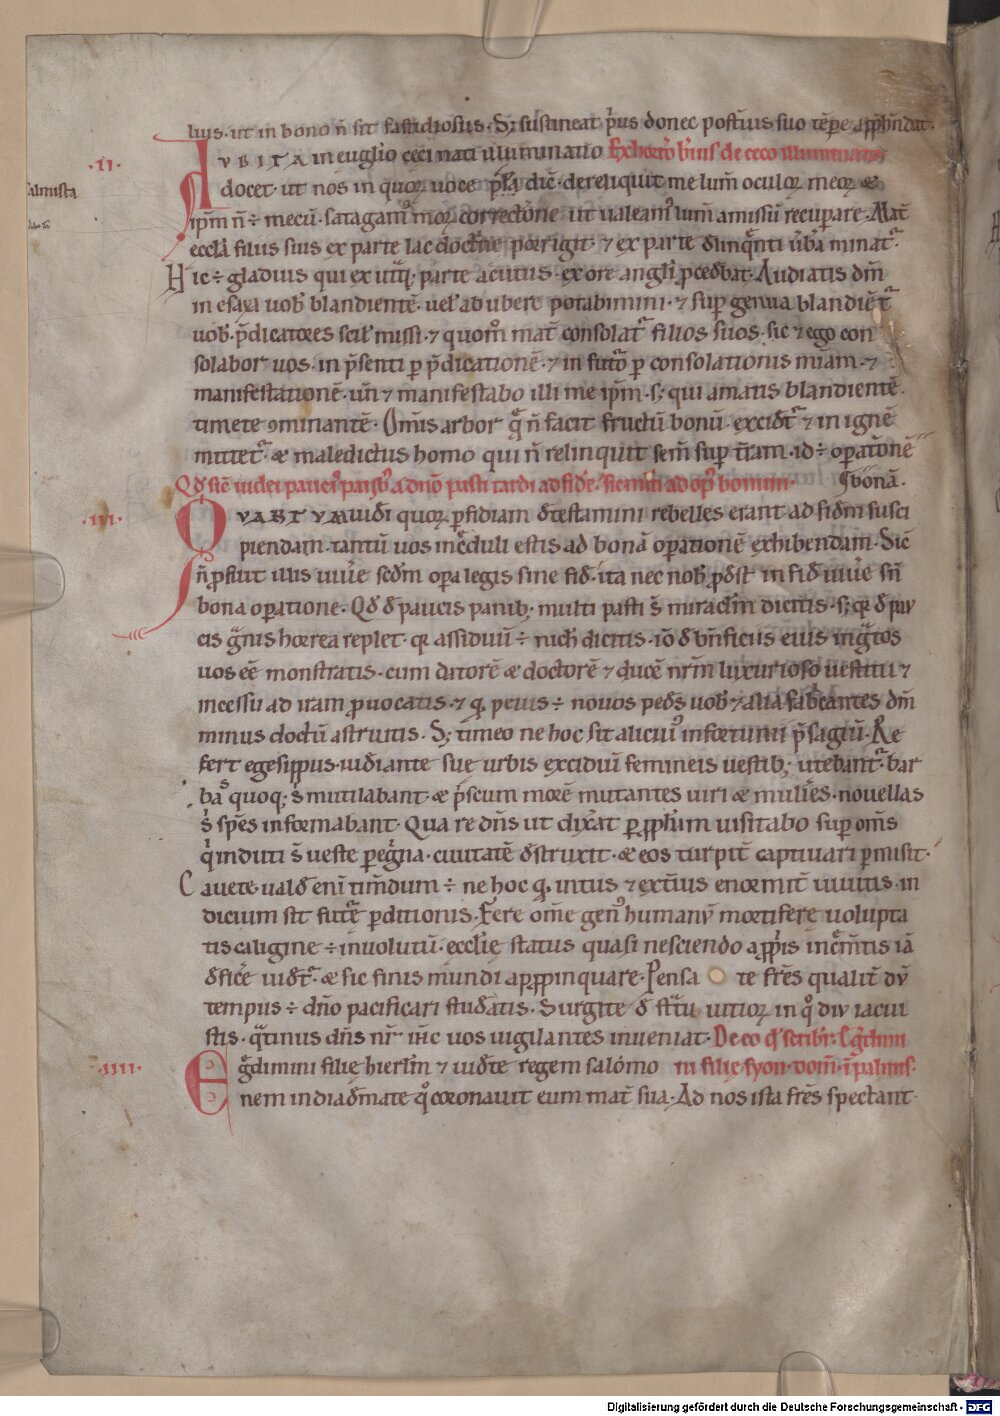 lius. ut in bono n̄ sit fastidiosus. S; sustineat p̄us donec post̄ius suo tēpore app̄hendat.
.II. AVDITA in euḡlio ceci nati illuminatio Exhortō b̄uis de ceco illuminato
salmista docet. ut nos in quorū uoce p̄sā dic̄. dereliquit me lum̄ oculorū meorū &
ip̄m n̄ ÷ mecū. satagam᷒ morū correctione ut ualeam᷒ lum̄ amissū recuperare. Mat̄
eccl̄a filiis suis ex parte lac doctrine porrigit. ⁊ ex parte delinquenti ūba minat᷑.
Hic ÷ gladius qui ex utq̄ parte acutus. ex ore angl̄i p̄cedebat. Audiatis dn̄m
in esaya uob̄ blandientē. uel̄ ad ubera potabimini. ⁊ sup̄ genua blandiēt᷑
uob̄. p̄dicatores scil̄ missi. ⁊ quom̄o mat̄ consolat᷑ filios suos. sic ⁊ ego con
solabor uos. in p̄senti p̄ p̄dicationē. ⁊ in futō p̄ consolationis mīam. ⁊
manifestationē. uñ ⁊ manifestabo illi me ip̄m. s; qui amatis blandientē.
timete ꝯminantē. Om̄is arbor q̄ n̄ facit fructū bonū. excidet᷑ ⁊ in ignē
mittet᷑. & maledictus homo qui n̄ relinquit sem̄ sup̄ t̄ram. id ÷ op̄ationē
bonā.
.III. QVANTVM uidi quorū p̄fidiam d̄testamini rebelles erant ad fidm̄ susci
piendam. tantū uos inc̄duli estis ad bonā op̄ationē exhibendam. Sic̄
n̄ p̄fuit illis uiu̅e sed̄m opa legis sine fid̄. ita nec nob̄ p̄dest in fid̄ uiu̅e sn̄
bona op̄atione. Qd̄ d̄ paucis panib; multi pasti s̄ miraclm̄ dicitis. s; q̄ d̄ pau
cis g̃nis horrea replet. q̄ assiduū ÷ nich̄ dicitis. iō d̄ bn̄ficiis eius ing̃tos
uos eē monstratis. cum datorē & doctorē & ducē nr̄m luxurioso uestitu ⁊
incessu ad iram p̄uocatis. ⁊ q. peius ÷ nouos peds̄ uob̄ ⁊ alia fab̄cantes dm̄
minus doctū astruitis. S; timeo ne hoc sit alicui᷒ infortunii p̄sagiū. Re
fert egesippus. iudiante sue urbis excidiū femineis uestib; utebant᷑. bar
bas quoq; s̄ mutilabant. & p̄scum morē mutantes uiri & mulieres. nouellas
s̄ spēs informabant. Qua re dn̄s ut dix̄at p̄ pp̄h̄m uisitabo sup̄ om̄s
q̄ induti s̄ ueste p̄eg̃na. ciuitatē d̄struxit. & eos turpit̄ captiuari p̄misit.
Cauete. uald̄ enī tim̄dum ÷ ne hoc q. intus ⁊ ext̄ius enormit̄ uiuitis. in
dicium sit futr̄e p̄ditionis. Fere om̄e gen᷒ humanū mortifere uolupta
tis caligine ÷ inuolutū. ecclīe status quasi nesciendo a pp̄is inc̄mtis iā
d̄fic̄e uidet᷑. & sic finis mundi app̄pinquare. Pensate fr̄es qualit̄ dū
tempus ÷ dn̄o pacificari studeatis. Surgite d̄ st̄tu uitiorū in q̊ diu iacui
stis. q̃tinus dn̄s nr̄ ih̄c uos uigilantes inueniat. De eo q̄ scribit᷑. Eg̃dimini
.IIII. Eg̃dimini filie hierlm̄ ⁊ uidete regem salomo filie syon.
nem in diademate q̊ coronauit eum mat̄ sua. Ad nos ista fr̄es spectant.
Digitalisierung gefördert durch die Deutsche Forschungsgemeinschaft - DFG